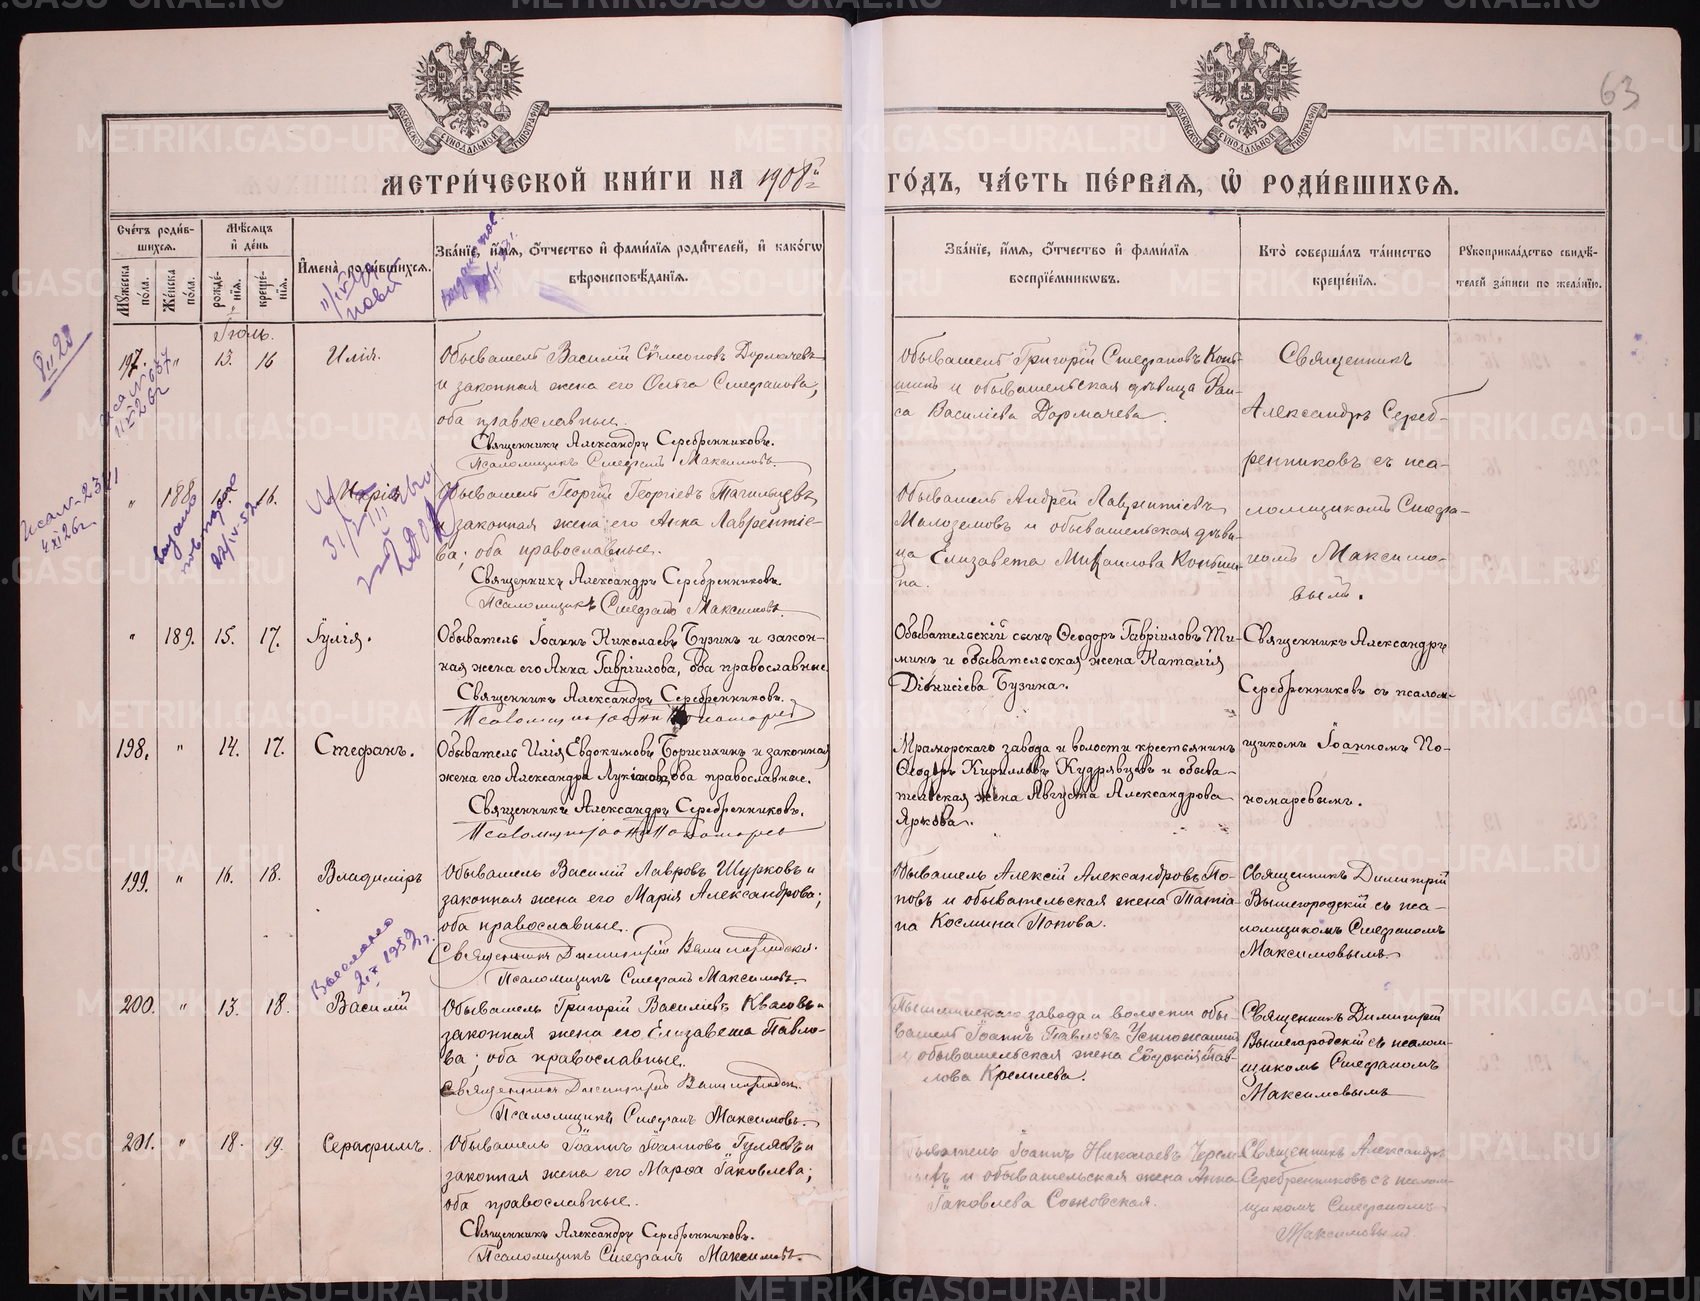 63
МЕТРИ́ЧЕСКОЙ КНИ́ГИ НА 1908й
ГО́ДЪ, ЧА́СТЬ ПЕ́РВАЯ, Ѡ РОДИ́ВШИХСЯ.
Счетъ роди́в-
шихся.
Мѣсяцъ
и день
Мужеска по́ла.
Же́нска по́ла.
рожде́нія.
креще́нія.
Имена̀ роди́вшихся.
Зва́ніе, и́мя, о́тчество и фами́лія роди́телей, и како́гѡ
вѣроисповѣ́данія.
Зва́ніе, и́мя, о́тчество и фами́лія
воспріе́мниковъ.
Кто̀ соверша́лъ та́инство
креще́нія.
Рукоприкла́дство свидѣ́-
телей за́писи по жела́нію.
Іюль.
197. " 13. 16 Илія.
Обыватель Василій Симеоновъ Дормачевъ
и законная жена его Ольга Стефанова,
оба православные.
Священникъ Александръ Серебренниковъ.
Псаломщикъ Стефанъ Максимовъ.
Обыватель Григорій Стефановъ Конь-
шинъ и обывательская дѣвица Раи-
са Василіева Дормачева.
Священникъ
Александръ Сереб-
ренниковъ съ пса-
" 188. 16.
Обыватель Георгій Георгіевъ Тагильцевъ
и законная жена его Анна Лаврентіе-
ва; оба православные.
Священникъ Александръ Серебренниковъ.
Псаломщикъ Стефанъ Максимовъ
Обыватель Андрей Лаврентіевъ
Малоземовъ и обывательская дѣви-
ца Елизавета Михаилова Коньши-
на.
ломщикомъ Стефа-
номъ Максимо-
вымъ.
" 189. 15. 17. Іулія.
Обыватель Іоаннъ Николаевъ Бузинъ и закон-
ная жена его Анна Гавріилова, оба православные
Священникъ Александръ Серебренниковъ.
Обывательскій сынъ Ѳеодоръ Гавріиловъ Ти-
минъ и обывательская жена Наталія
Діонисіева Бузина.
Священникъ Александръ
Серебренниковъ съ псалом-
198. " 14. 17. Стефанъ.
Обыватель Илія Евдокимовъ Борисихинъ и законная
жена его Александра Лукіанова, оба православные.
Священникъ Александръ Серебренниковъ.
Мраморскаго завода и волости крестьянинъ
Ѳеодоръ Кирилловъ Кудрявцевъ и обыва-
тельская жена Августа Александрова
Яркова.
щикомъ Іоанномъ По-
номаревымъ.
199. " 16. 18. Владиміръ
Обыватель Василій Лавровъ Шурковъ и
законная жена его Марія Александрова;
оба православные.
Священникъ Димитрій Вышегородскій.
Псаломщикъ Стефанъ Максимовъ.
Обыватель Алексій Александровъ По-
повъ и обывательская жена Татіа-
на Космина Попова.
Священникъ Димитрій
Вышегородскій съ пса-
ломщикомъ Стефаномъ
Максимовымъ.
200. " 13. 18. Василій
Обыватель Григорій Василіевъ Квасовъ и
законная жена его Елизавета Павло-
ва; оба православные.
Священникъ Димитрій Вышегородскій.
Псаломщикъ Стефанъ Максимовъ.
завода и волости обы-
ватель Іоаннъ Павловъ
и обывательская жена Евдокія Пав-
лова Кремлева.
Священникъ Димитрій
Вышегородскій съ псалом-
щикомъ Стефаномъ
Максимовымъ
201. " 18. 19. Серафимъ.
Обыватель Іоаннъ Іоанновъ Гуляевъ и
законная жена его Марѳа Іаковлева;
оба православные.
Священникъ Александръ Серебренниковъ.
Псаломщикъ Стефанъ Максимовъ.
Обыватель Іоаннъ Николаевъ
и обывательская жена Анна
Іаковлева Сосновская.
Священникъ Александръ
Серебренниковъ съ псалом-
щикомъ Стефаномъ
Максимовымъ
METRIKI.GASO-URAL.RU